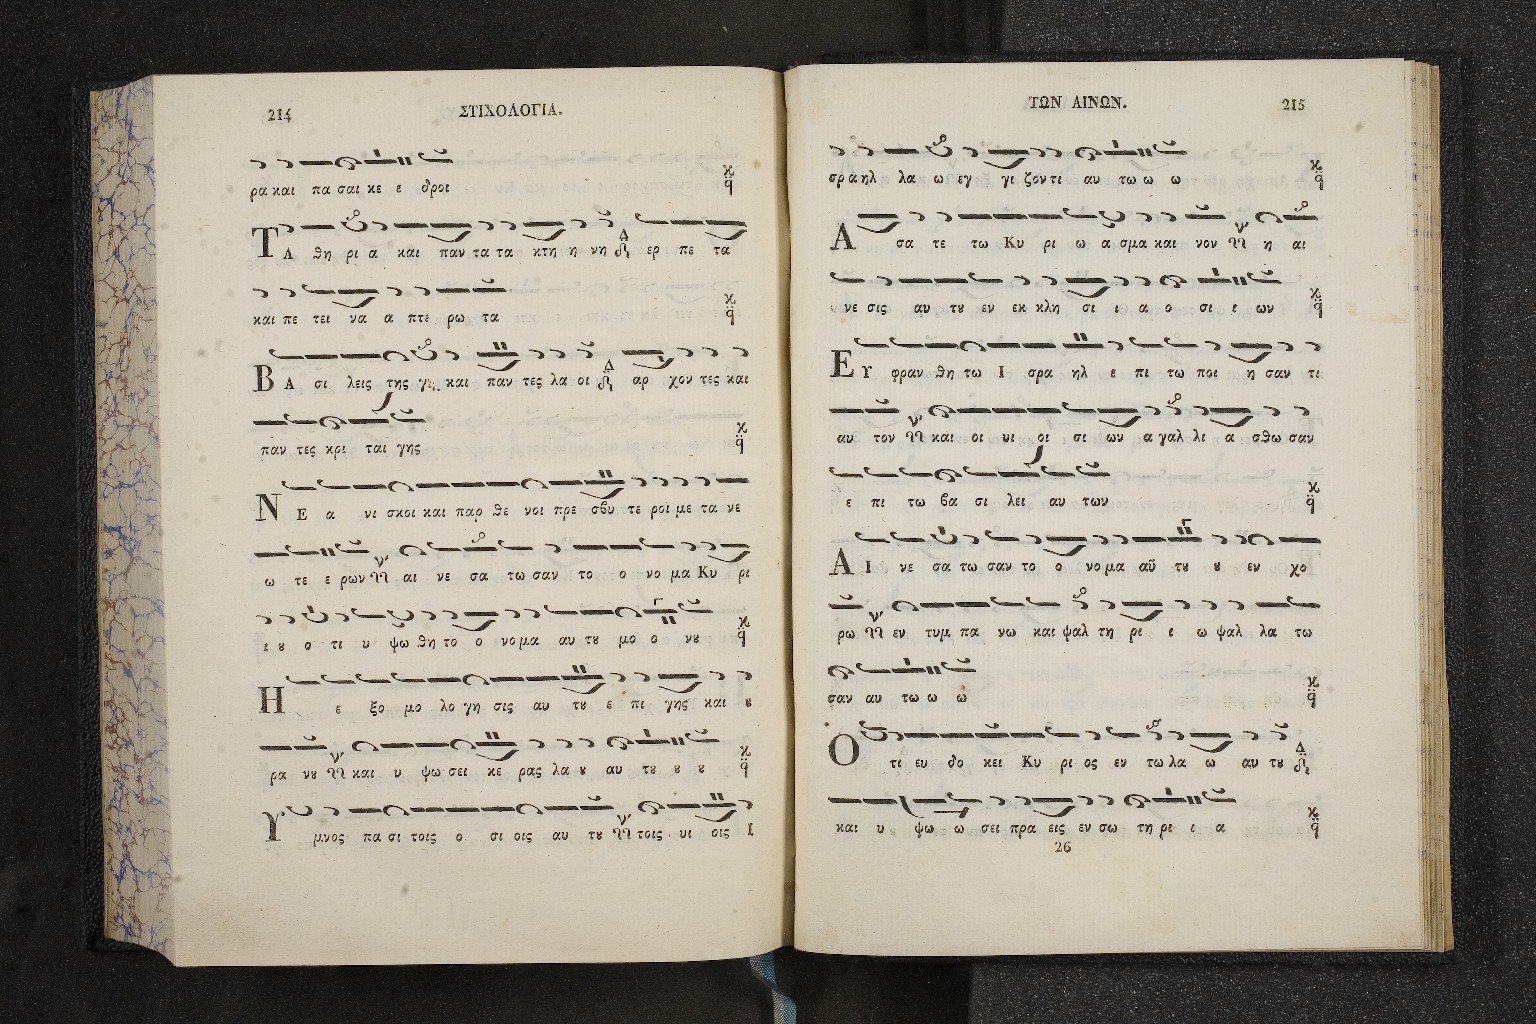 214
ΣΤΙΧΟΛΟΓΙΑ.
ρα και πα σαι κε ε δροι
ΤΑ θη ρι α και παν τα τα κτη η νη ερ πε τα
και πε τει να α πτε ρω τα
ΒΑ σι λεις της γης και παν τες λα οι αρ χον τες και
παν τες κρι ται γης
ΝΕ α νι σκοι και παρ θε νοι πρε σβυ τε ροι με τα νε
ω τε ε ρων αι νε σα τω σαν το ο νο μα Κυ ρι
ι ȣ ο τι υ ψω θη το ο νο μα αυ τȣ μο ο νȣ
Η ε ξο μο λο γη σις αυ τȣ ε πι γης και ȣ
ρα νȣ και υ ψω σει κε ρας λα ȣ αυ τȣ ȣ ȣ
Υ μνος πα σι τοις ο σι οις αυ τȣ τοις υι οις Ι
ΤΩΝ ΑΙΝΩΝ.
215
σρα ηλ λα ω εγ γι ζον τι αυ τω ω ω
Α σα τε τω Κυ ρι ω α σμα και νον η αι
νε σις αυ τȣ εν εκ κλη σι ι α ο σι ι ων
ΕΥ φραν θη τω Ι σρα ηλ ε πι τω ποι η σαν τι
αυ τον και οι υι οι σι ων α γαλ λι α σθω σαν
ε πι τω βα σι λει αυ των
ΑΙ νε σα τω σαν το ο νο μα αϋ τȣ ȣ εν χο
ρω εν τυμ πα νω και ψαλ τη ρι ι ω ψαλ λα τω
σαν αυ τω ω ω
Ο τι ευ δο κει Κυ ρι ος εν τω λα ω αυ τȣ
και υ ψω ω σει πρα εις εν σω τη ρι ι α
26